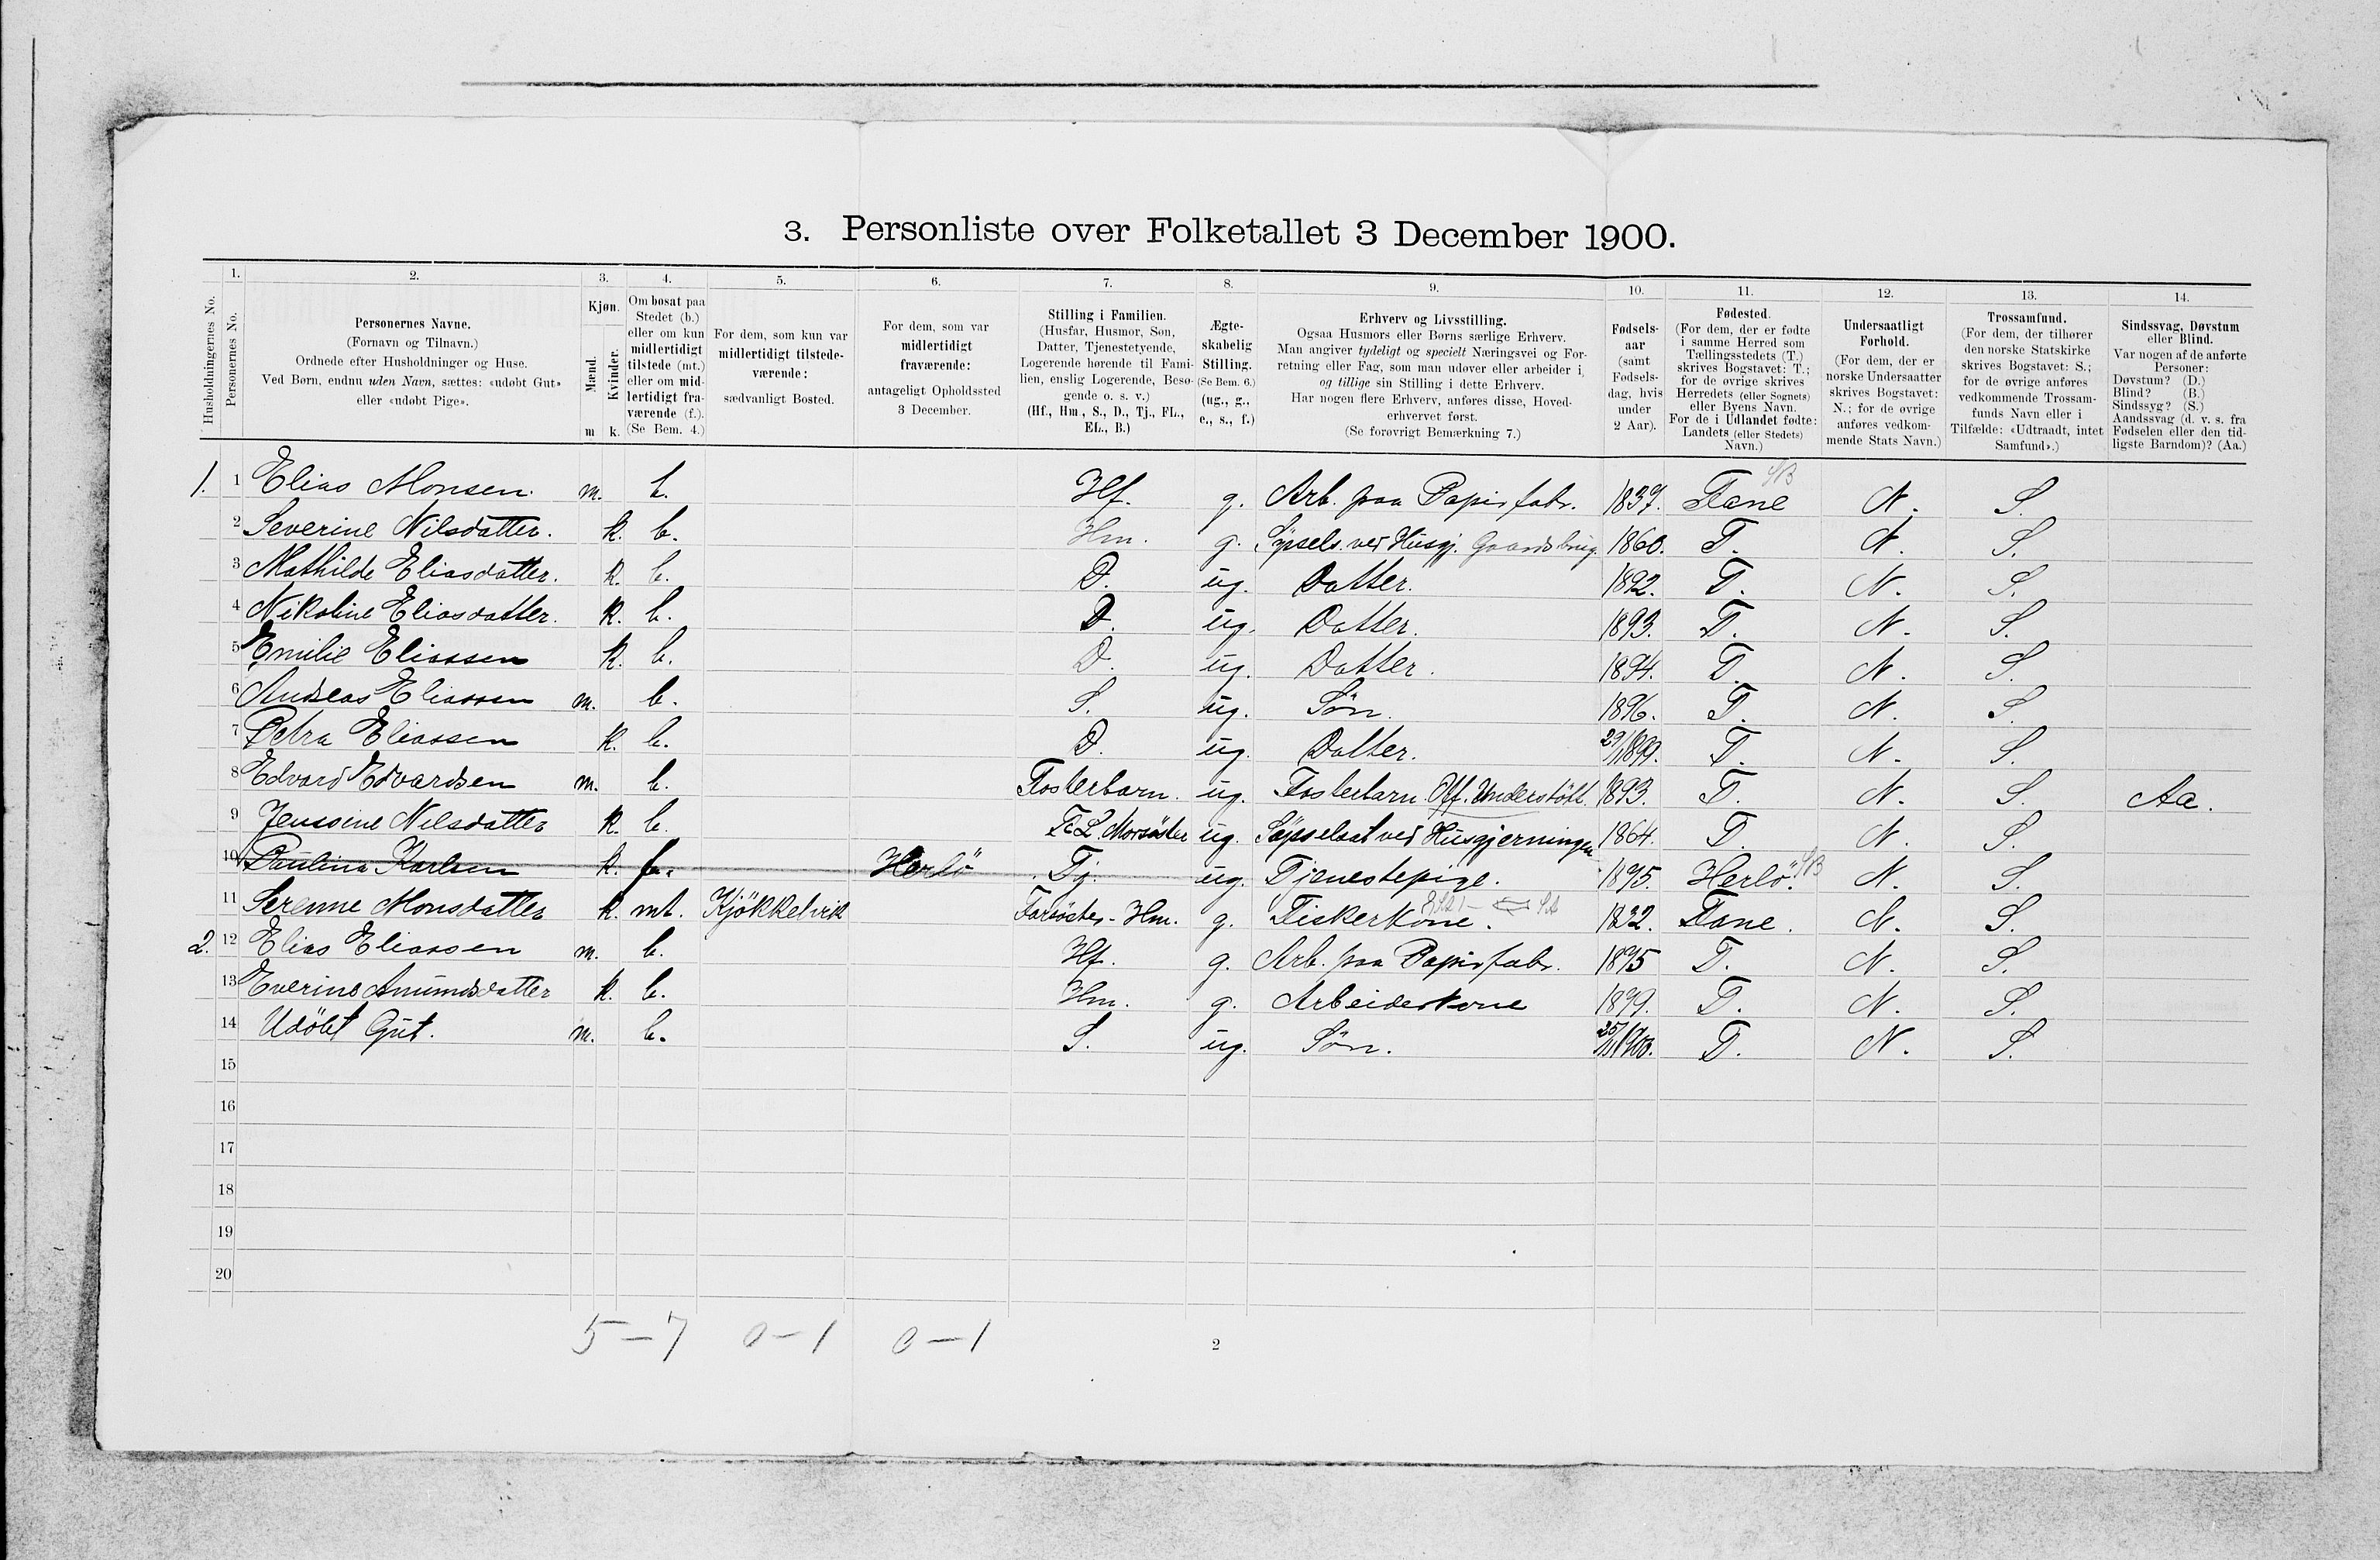 3. Personliste over Folketallet 3 December 1900.
Husholdningernes No.
1. Personernes No.
2. Personernes Navne.
(Fornavn og Tilnavn.)
Ordnede efter Husholdninger og Huse.
Ved Børn, endnu uden Navn, sættes: «udøbt Gut»
eller «udøbt Pige».
3. Kjøn.
Mænd. m
Kvinder. k.
4. Om bosat paa
Stedet (b.)
eller om kun
midlertidigt
tilstede (mt.)
eller om mid-
lertidigt fra-
værende (f.).
(Se Bem. 4.)
5. For dem, som kun var
midlertidigt tilstede-
værende:
sædvanligt Bosted.
6. For dem, som var
midlertidigt
fraværende:
antageligt Opholdssted
3 December.
7. Stilling i Familien.
(Husfar, Husmor, Søn,
Datter, Tjenestetyende,
Logerende hørende til Fami-
lien, enslig Logerende, Besø-
gende o. s. v.)
(Hf., Hm., S., D., Tj., FL.,
EL., B.)
8. Ægte-
skabelig
Stilling.
(Se Bem. 6.)
(ug., g.,
e., s., f.)
9. Erhverv og Livsstilling.
Ogsaa Husmors eller Børns særlige Erhverv.
Man angiver tydeligt og specielt Næringsvei og For-
retning eller Fag, som man udøver eller arbeider i,
og tillige sin Stilling i dette Erhverv.
Har nogen flere Erhverv, anføres disse, Hoved-
erhvervet først.
(Se forøvrigt Bemærkning 7.)
10. Fødsels-
aar
(samt
Fødsels-
dag, hvis
under
2 Aar).
11. Fødested.
(For dem, der er fødte
i samme Herred som
Tællingsstedets (T.)
skrives Bogstavet: T.;
for de øvrige skrives
Herredets (eller Sognets)
eller Byens Navn.
For de i Udlandet fødte:
Landets (eller Stedets)
Navn.)
12. Undersaatligt
Forhold.
(For dem, der er
norske Undersaatter
skrives Bogstavet:
N.; for de øvrige
anføres vedkom-
mende Stats Navn.)
13. Trossamfund.
(For dem, der tilhører
den norske Statskirke
skrives Bogstavet: S.;
for de øvrige anføres
vedkommende Trossam-
funds Navn eller i
Tilfælde: «Udtraadt, intet
Samfund».)
14. Sindssvag, Døvstum
eller Blind.
Var nogen af de anførte
Personer:
Døvstum? (D.)
Blind? (B.)
Sindssyg? (S.)
Aandssvag (d. v. s. fra
Fødselen eller den tid-
ligste Barndom)? (Aa.)
1. 1 Elias Monsen. m. b. Hf. g. Arb. paa Papirfabr. 1837. Fane SB N. S.
2 Severine Nilsdatter. k. b. Hm. g. Sÿsels. ved Husgj. Gaardsbrug. 1860. T. N. S.
3 Mathilde Eliasdatter. k. b. D. ug. Datter. 1892. T. N. S.
4 Nikoline Eliasdatter. k. b. D. ug. Datter. 1893. T. N. S.
5 Emilie Eliassen k. b. D. ug. Datter. 1894. T. N. S.
6 Andreas Eliassen m. b. S. ug. Søn. 1896. T. N. S.
7 Petra Eliassen k. b. D. ug. Datter. 29/11 1899. T. N. S.
8 Edvard Edvardsen m. b. Fosterbarn. ug. Fosterbarn. Off. Understøtt. 1893. T. N. S. Aa.
9 Jenssine Nilsdatter k. b. F.L. Morsøster ug. Sÿsselsat ved Husgjerningen 1864. T. N. S.
10 Paulina Karlsen k. f. Herlö Tj. ug. Tjenestepige. 1895. Herlö. SB N. S.
11 Serenne Monsdatter k. mt. Kjökkelvik Farsöster - Hm. g. Fiskerkone. 1832. Fane. N. S.
2. 12 Elias Eliassen m. b. Hf. g. Arb. paa Papirfabr. 1895 T. N. S.
13 Everine Amundsdatter k. b. Hm. g. Arbeiderkone 1899. T. N. S.
14 Udöbt Gut. m. b. S. ug. Søn. 25/11 1900. T. N. S.
15
16
17
18
19
20
5 – 7 0 – 1 0 – 1
2